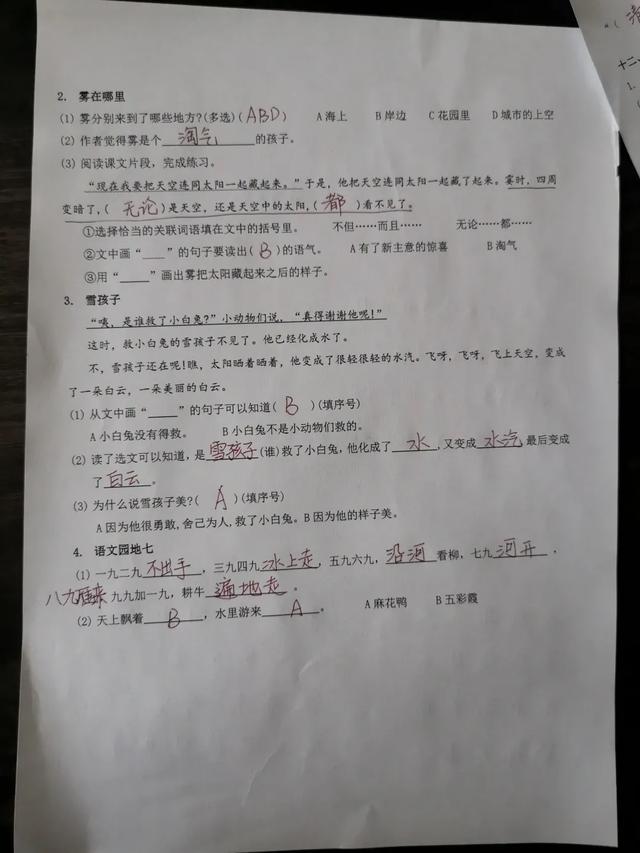 "(
十二、
1.
2. 雾在哪里
(1) 雾分别来到了哪些地方?(多选)( ABD ) A海上 B岸边 C花园里 D城市的上空
(2) 作者觉得雾是个 淘气 的孩子。
(3) 阅读课文片段，完成练习。
“现在我要把天空连同太阳一起藏起来。”于是，他把天空连同太阳一起藏了起来。霎时，四周
变暗了，( 无论 )是天空，还是天空中的太阳，( 都 )看不见了。
①选择恰当的关联词语填在文中的括号里。 不但……而且…… 无论……都……
②文中画“____”的句子要读出( B )的语气。 A有了新主意的惊喜 B淘气
③用“_____”画出雾把太阳藏起来之后的样子。
3. 雪孩子
“咦，是谁救了小白兔?”小动物们说，“真得谢谢他呢!”
这时，救小白兔的雪孩子不见了。他已经化成水了。
不，雪孩子还在呢!瞧，太阳晒着晒着，他变成了很轻很轻的水汽。飞呀，飞呀，飞上天空，变成
了一朵白云，一朵美丽的白云。
(1) 从文中画“_____”的句子可以知道( B )(填序号)
A小白兔没有得救。 B小白兔不是小动物们救的。
(2) 读了选文可以知道，是 雪孩子 (谁)救了小白兔，他化成了 水 ，又变成 水汽 最后变成
了 白云 。
(3) 为什么说雪孩子美?( A )(填序号)
A因为他很勇敢,舍己为人,救了小白兔。B因为他的样子美。
4. 语文园地七
(1) 一九二九 不出手 ，三九四九 冰上走 ，五九六九， 沿河 看柳，七九 河开 ，
八九雁来 九九加一九，耕牛 遍地走 。
(2) 天上飘着 B ，水里游来 A 。 A麻花鸭 B五彩霞